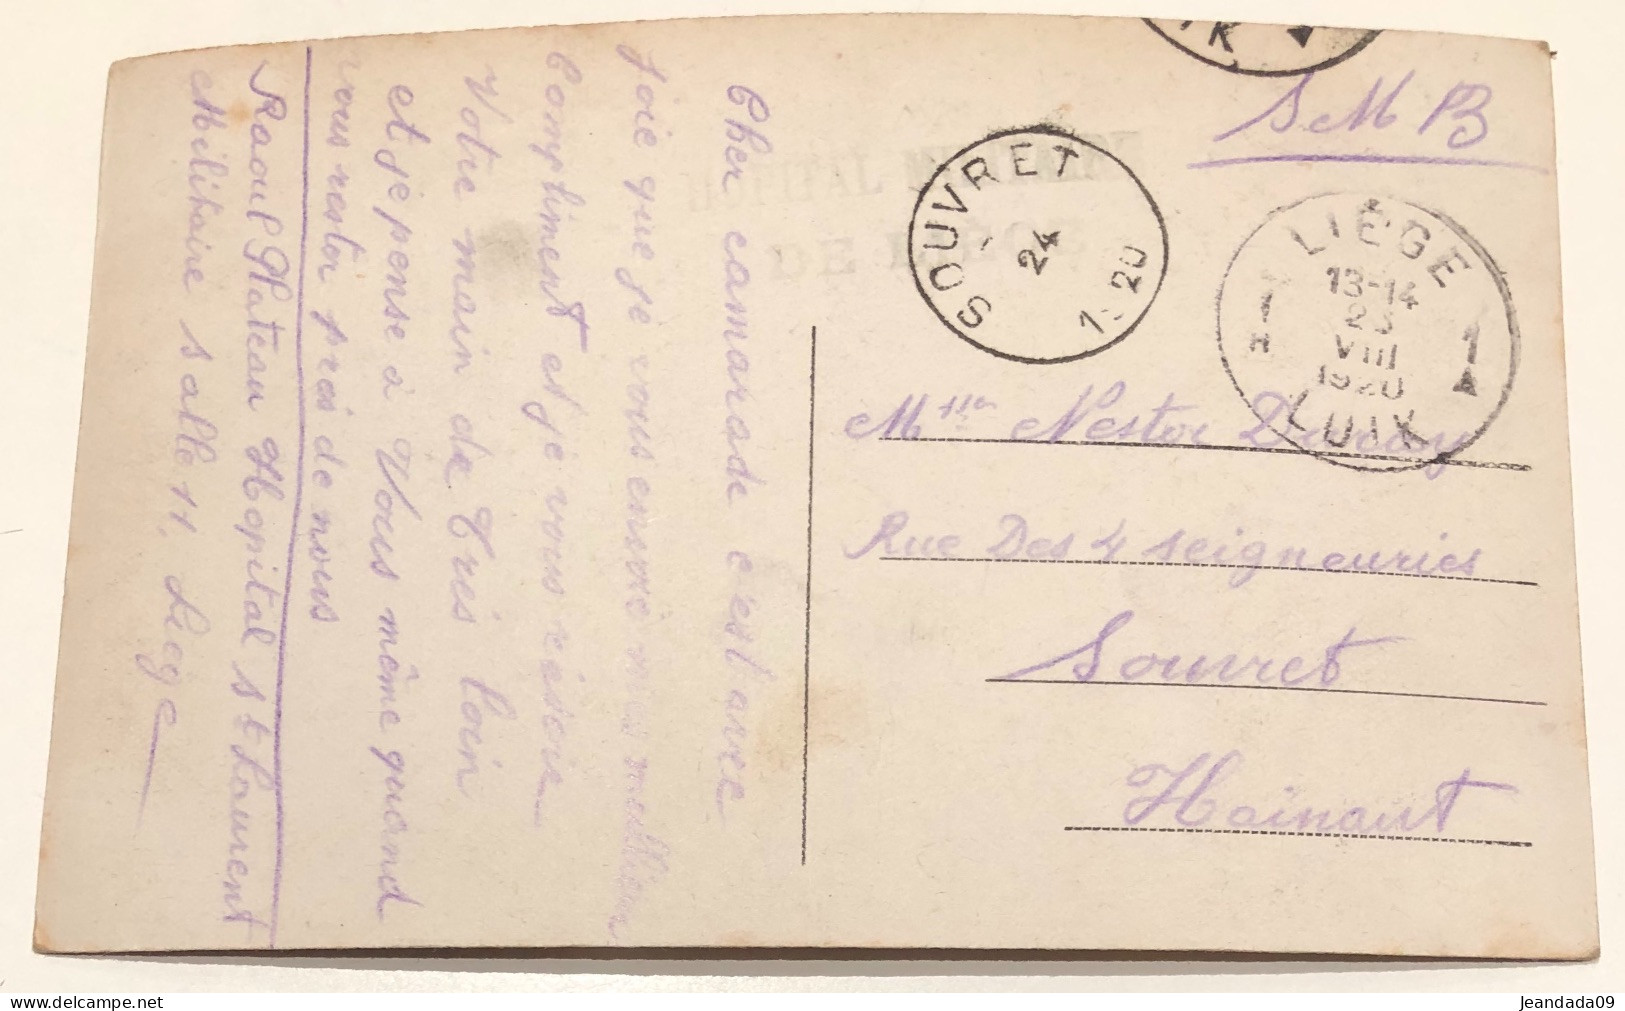 Cher camarade c'est avec
Joie que je vous envoie mes meilleurs
Compliment et je vous réserve
Votre main de Très loin
et je pense à Vous même quand
vous restér près de nous
Raoul Plateau Hopital St Laurent
Militaire salle 11. Liege
S M B
HOPITAL MILITAIRE
DE LIEGE
SOUVRET
24
1920
LIÈGE
13-14
VIII
1920
LUIK
1 1
Nestor
Rue Des 4 seigneuries
Souvret
Hainaut
jeandada09